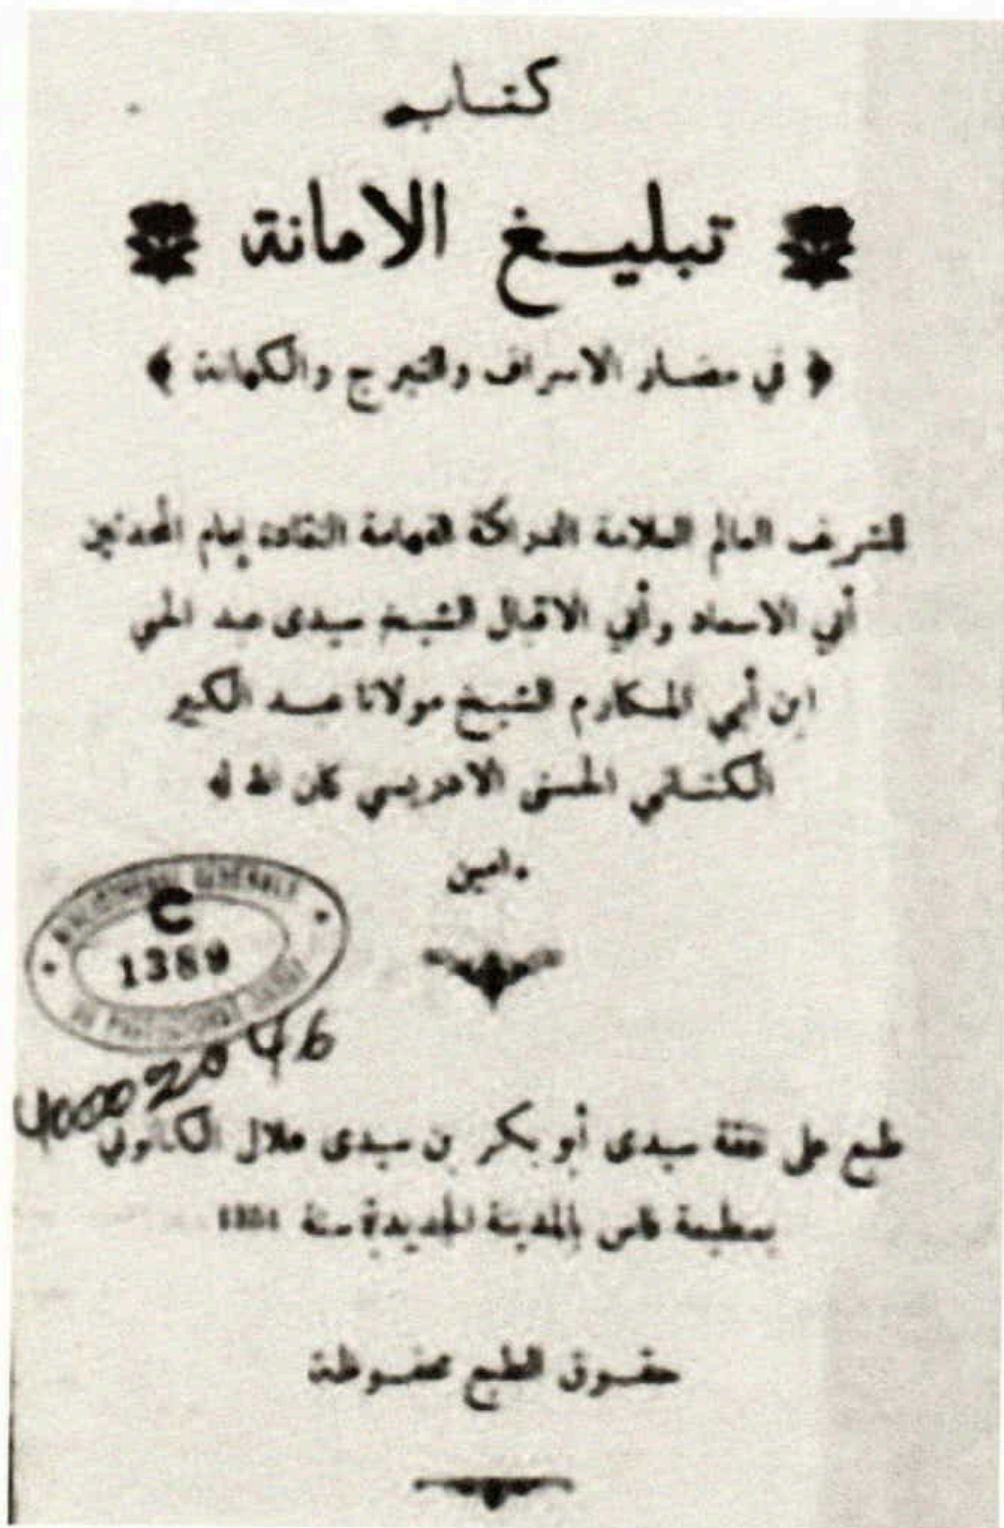 كتاب
تبليغ الامانة
﴿ في مضار الاسراف والتبرج والكهانة ﴾
للشريف العالم العلامة الدراكة الفهامة النقادة إمام المحدثين
أبي الاسعاد وأبي الاقبال الشيخ سيدى عبد الحي
ابن أبي المكارم الشيخ مولانا عبد الكبير
الكتاني الحسني الادريسي كان الله له
ءامين
BIBLIOTHEQUE GENERALE
C
1389
DU PROTECTORAT
40002046
طبع على نفقة سيدى أبو بكر بن سيدى علال
بمطبعة فاس بالمدينة الجديدة سنة
حقوق الطبع محفوظة